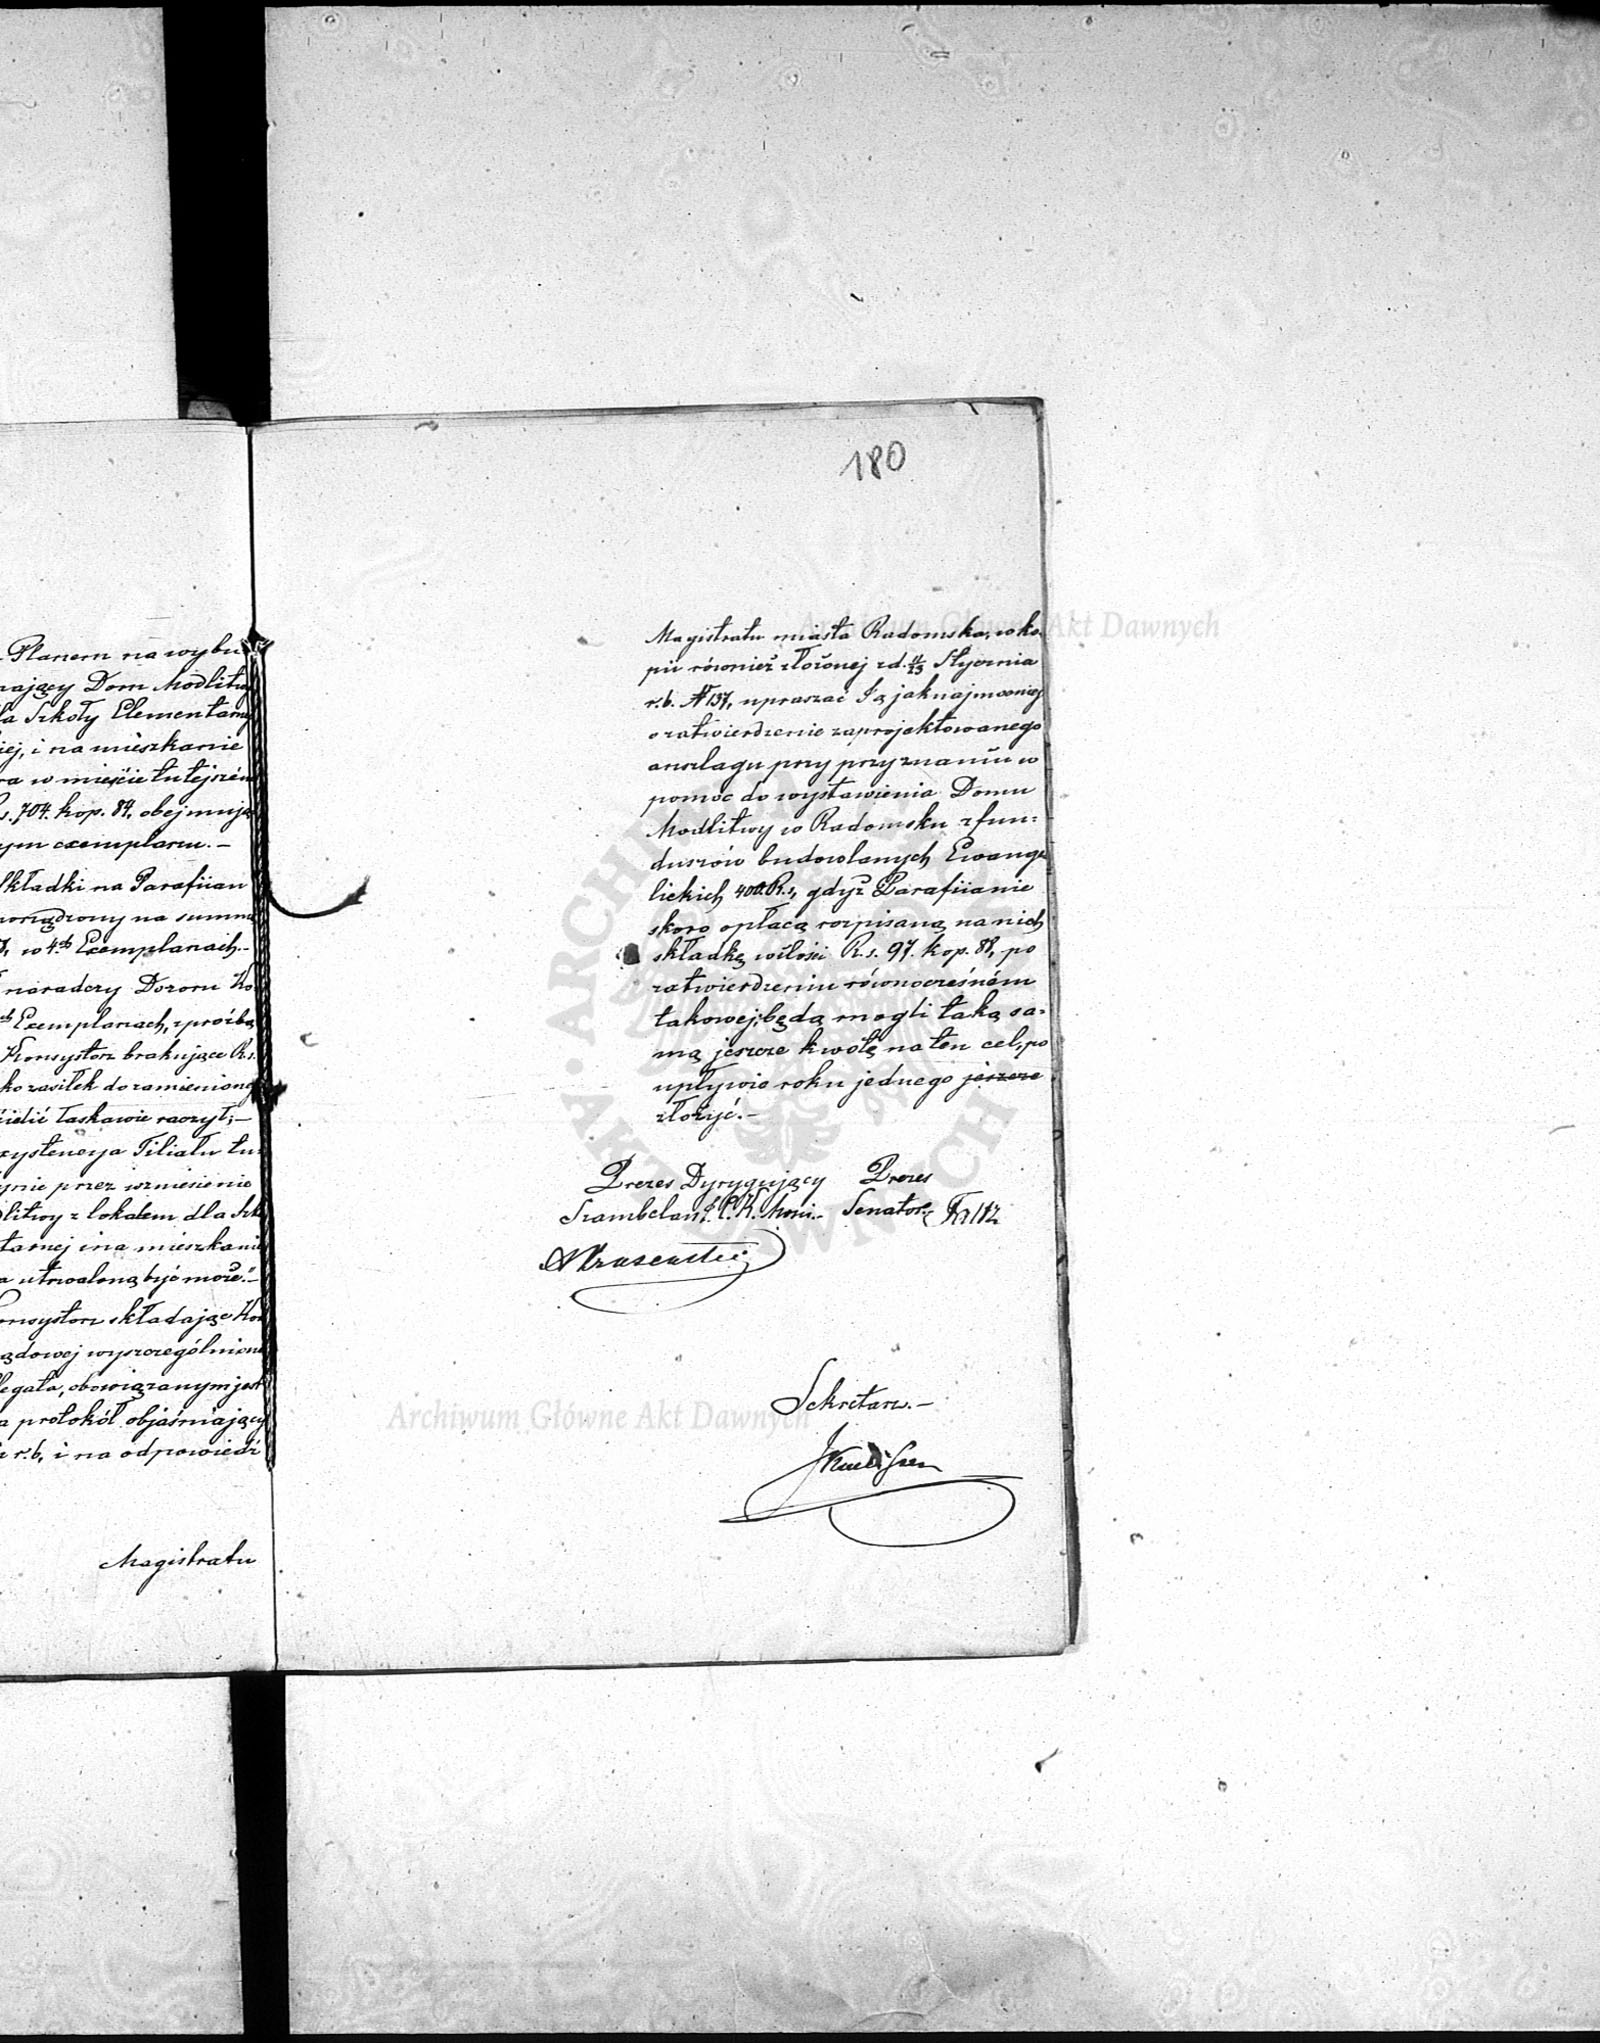 Planem na wybu
mający Dom Modlitwy
la Szkoły Elementarnej
iej, i na mieszkanie
ra w mieście tutejszém
s. 704. kop. 84, obejmują
ym exemplarzu. –
składki na Parafiian
porządzony na summę
w 4ch Exemplarzach. –
narádczy Dozoru Ko
ch Exemplarzach, z prośbą
Konsystorz brakujące R.s.
ko zasiłek do zamienione
dzielić łaskawie raczył; –
xystencya Filiału tu
ynie przez wzniesienie
dlitwy z lokalem dla Szko
tarnej i na mieszkanie
a utrwaloną być może." –
onsystorz składając Kom
ądowej wyszczególnione
legata, obowiązanym jest
a protokół objaśniający
r.b., i na odpowiedź
Magistratu
180
Magistratu miasta Radomska, w ko-
pii również złożonej z d. 11/23 Stycznia
r.b. N 137, upraszać Ją jak najmocniej
o zatwierdzenie zaprojektowanego
anszlagu przy przyznaniu w
pomoc do wystawienia Domu
Modlitwy w Radomsku z fun=
duszów budowlanych Ewange
lickich 400. R.s, gdyż Parafiianie
skoro opłacą rozpisaną na nich
składkę w ilości R.s. 97. kop. 88, po
zatwierdzeniu równocześném
takowej; będą mogli taką sa=
mą jeszcze kwotę na ten cel, po
upływie roku jednego jeszcze
złożyć. –
Prezes Dyrygujący Prezes
Szambelan J. C. K. Mości. – Senator
Sekretarz. –
ARCHIWUM GŁÓWNE AKT DAWNYCH
Archiwum Główne Akt Dawnych
Archiwum Główne Akt Dawnych